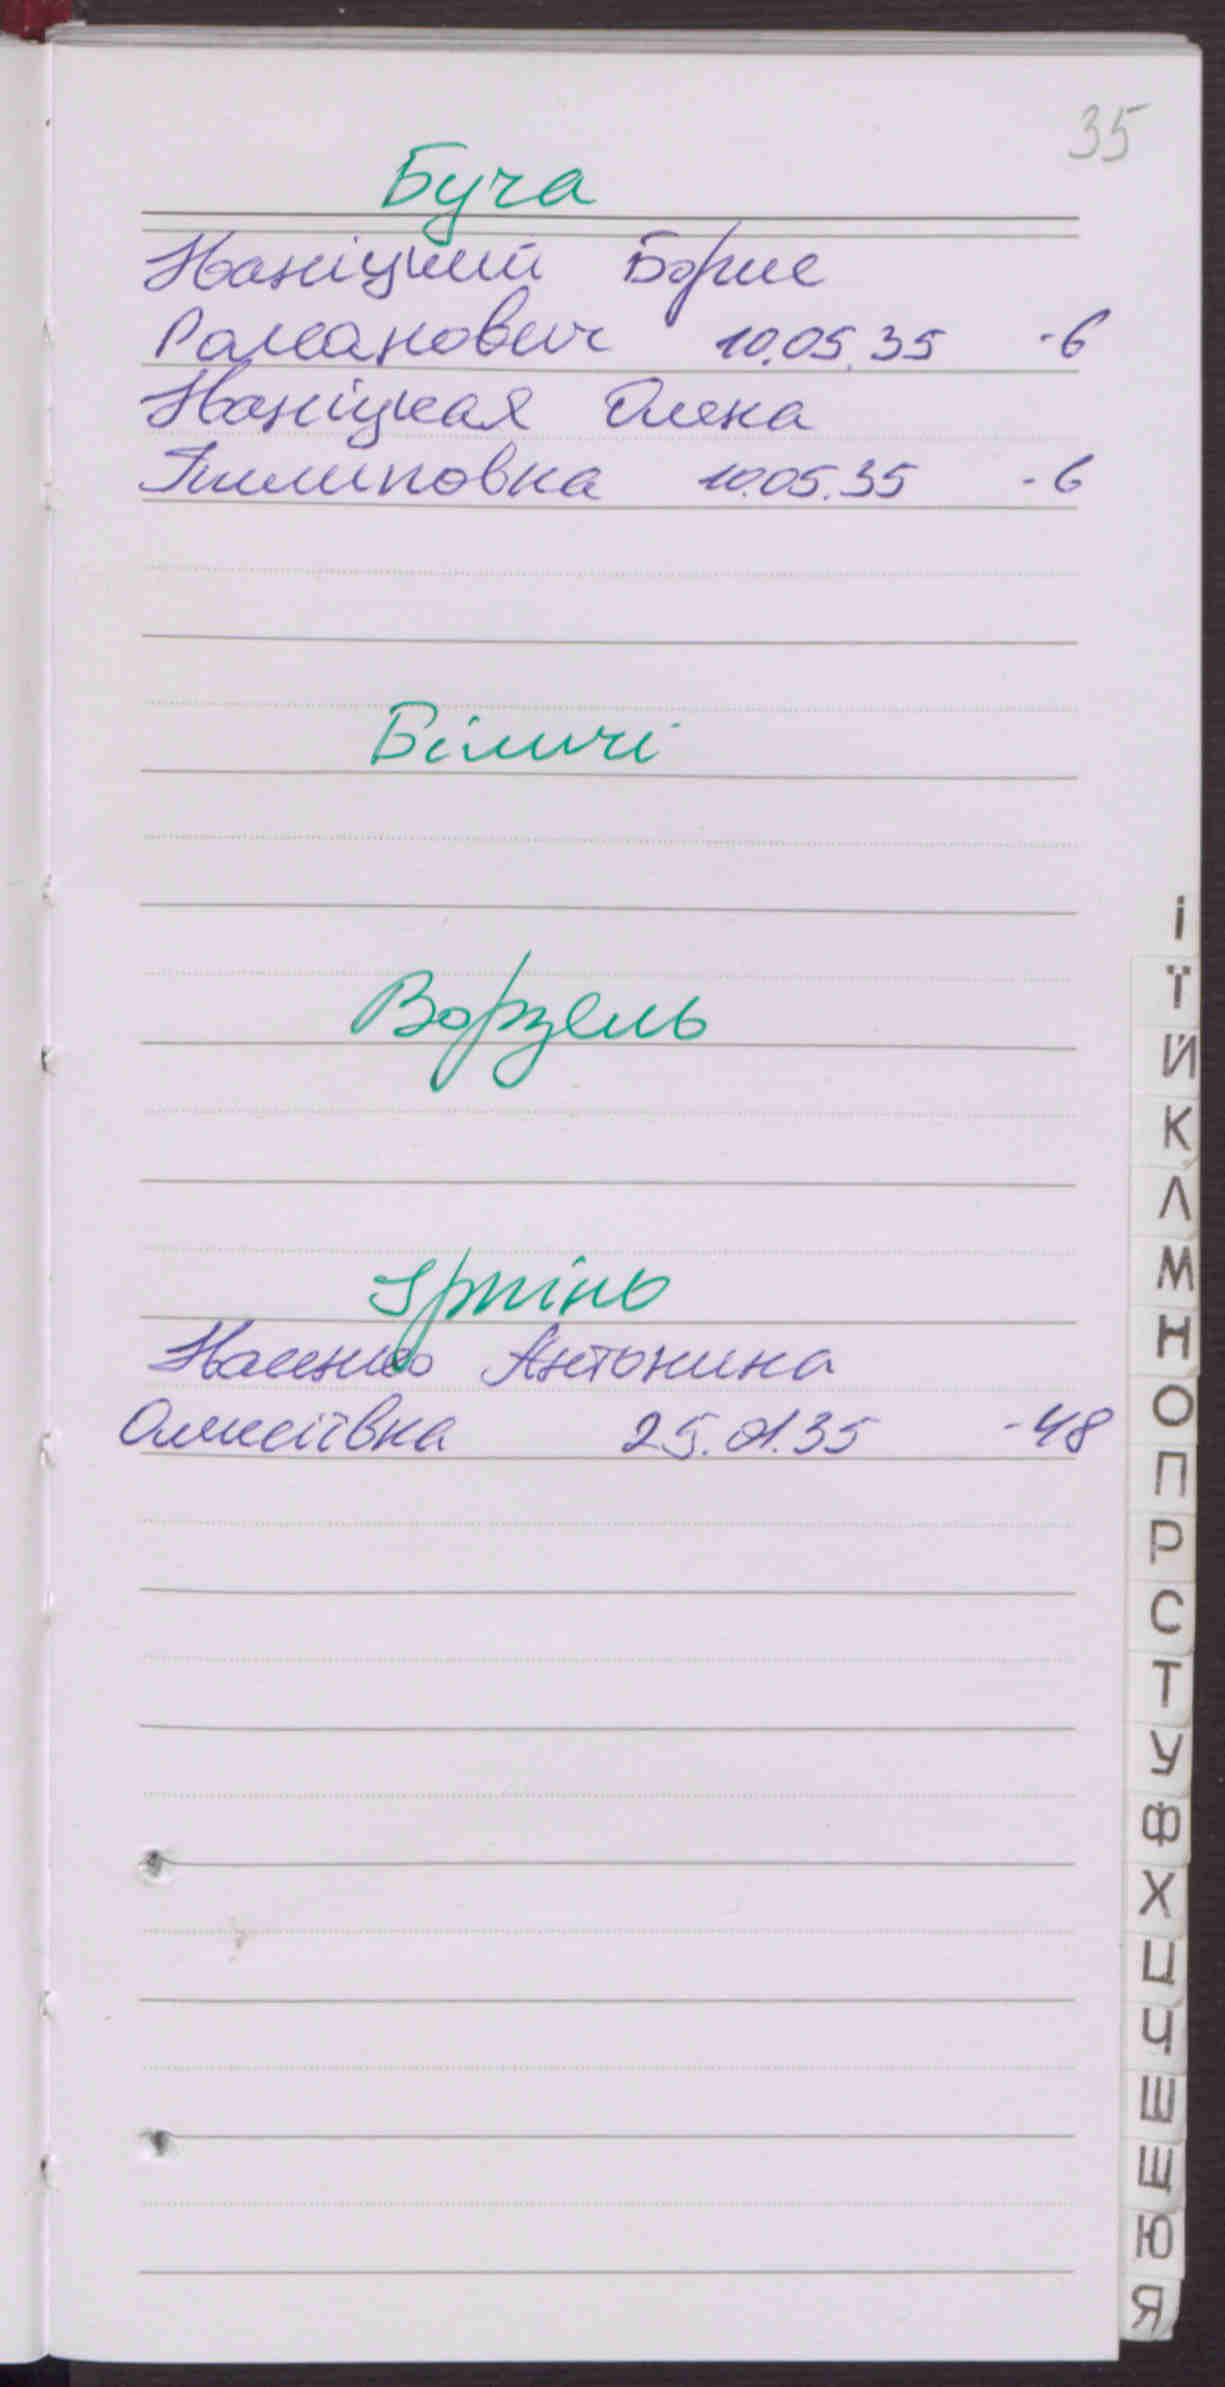 35
Буча
Наніцкий Борис
Романович 10.05.35 -6
Наніцкая Олена
Пилиповна 10.05.35 -6
Біличі
Ворзель
Ірпінь
Антонина
Олексіївна 25.01.35 -48
І
Ї
Й
К
Л
М
Н
О
П
Р
С
Т
У
Ф
Х
Ц
Ч
Ш
Щ
Ю
Я